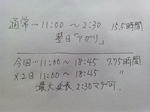 通常 11:00 〜 2:30 15.5時間
翌日「アガリ」
今回 11:00 〜 18:45 7.75時間
×2日 11:00 〜 18:45 〃
最大延長 2:30マデ可.